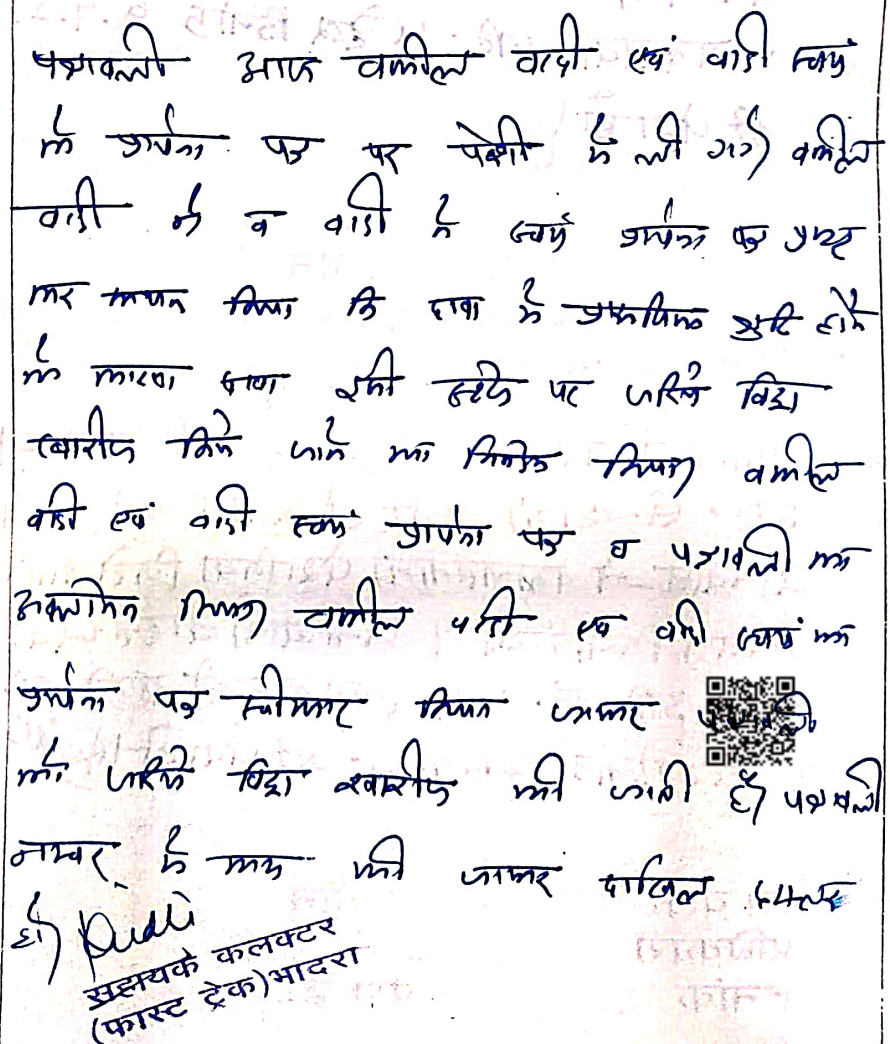 पत्रावली आज वकील वादी एवं वादी स्वयं
के प्रार्थना पत्र पर पेशी में ली गई) वकील
वादी ने व वादी ने स्वयं प्रार्थना पत्र प्रस्तुत
कर कथन किया कि दावा में तकनीकी त्रुटि होने
के कारण दावा इसी स्टेज पर जरिये विड्रा
खारीज किये जाने का निवेदन किया) वकील
वादी एवं वादी स्वयं प्रार्थना पत्र व पत्रावली का
अवलोकन किया) वकील वादी एवं वादी स्वयं का
प्रार्थना पत्र स्वीकार किया जाकर पत्रावली
को जरिये विड्रा खारीज की जाती है) पत्रावली
नम्बर से कम की जाकर दाखिल दफ्तर
हो)
सहायक कलक्टर
(फास्ट ट्रेक) भादरा